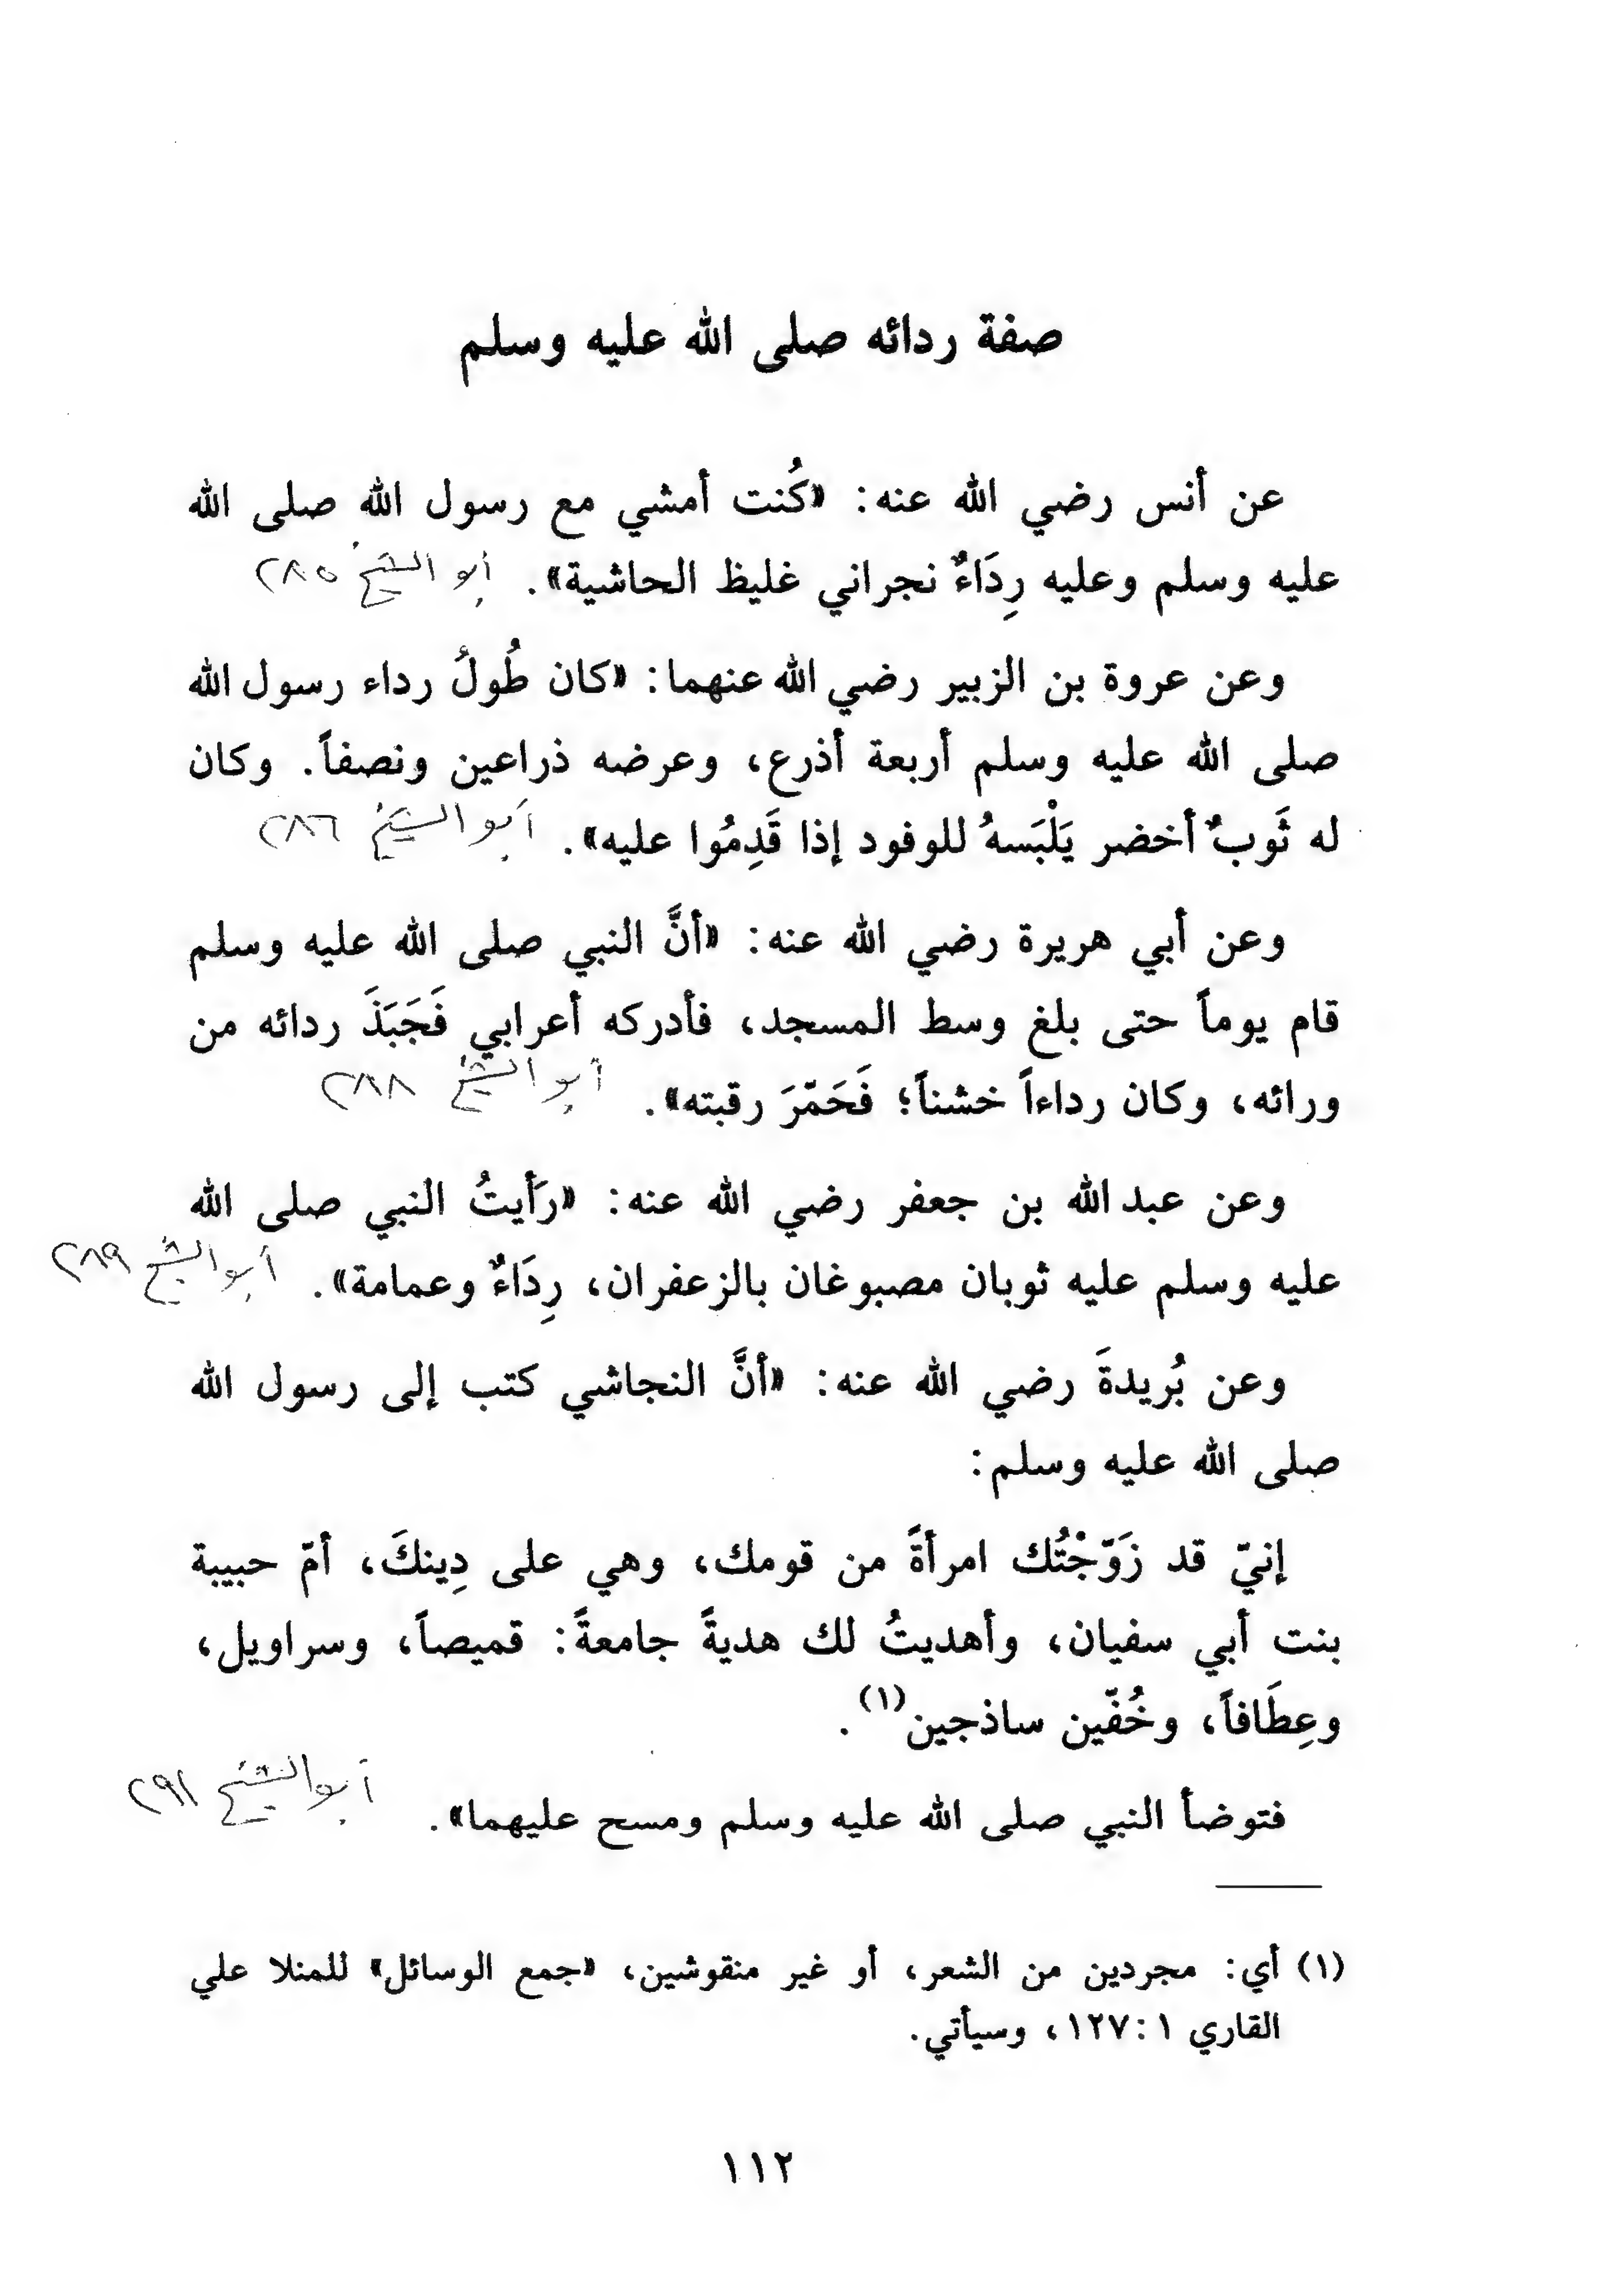 صفة ردائه صلى الله عليه وسلم
عن أنس رضي الله عنه: «كُنت أمشي مع رسول الله صلى الله
عليه وسلم وعليه رِدَاءٌ نجراني غليظ الحاشية». أبو الشيخ ٢٨٥
وعن عروة بن الزبير رضي الله عنهما: «كان طُولُ رداء رسول الله
صلى الله عليه وسلم أربعة أذرع، وعرضه ذراعين ونصفاً. وكان
له ثَوبٌ أخضر يَلْبَسهُ للوفود إذا قَدِمُوا عليه». أبو الشيخ ٢٨٦
وعن أبي هريرة رضي الله عنه: «أنَّ النبي صلى الله عليه وسلم
قام يوماً حتى بلغ وسط المسجد، فأدركه أعرابي فَجَبَذَ ردائه من
ورائه، وكان رداءاً خشناً؛ فَحَمّرَ رقبته». أبو الشيخ ٢٨٨
وعن عبد الله بن جعفر رضي الله عنه: «رَأَيتُ النبي صلى الله
عليه وسلم عليه ثوبان مصبوغان بالزعفران، رِدَاءٌ وعمامة». أبو الشيخ ٢٨٩
وعن بُريدةَ رضي الله عنه: «أنَّ النجاشي كتب إلى رسول الله
صلى الله عليه وسلم:
إنيّ قد زَوّجْتُك امرأةً من قومك، وهي على دِينكَ، أمّ حبيبة
بنت أبي سفيان، وأهديتُ لك هديةً جامعةً: قميصاً، وسراويل،
وعِطَافاً، وخُفّين ساذجين(١).
فتوضأ النبي صلى الله عليه وسلم ومسح عليهما». أبو الشيخ ٢٩١
(١) أي: مجردين من الشعر، أو غير منقوشين، «جمع الوسائل» للمنلا علي
القاري ١:١٢٧، وسيأتي.
١١٢